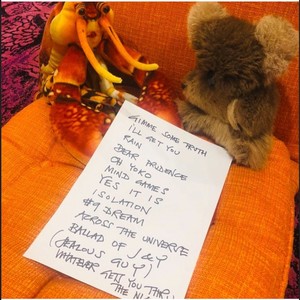 GIMME SOME TRUTH
I'LL GET YOU
RAIN
DEAR PRUDENCE
OH YOKO
MIND GAMES
YES IT IS
ISOLATION
#9 DREAM
ACROSS THE UNIVERSE
BALLAD OF J&Y
(JEALOUS GUY)
WHATEVER GETS YOU THRU
THE